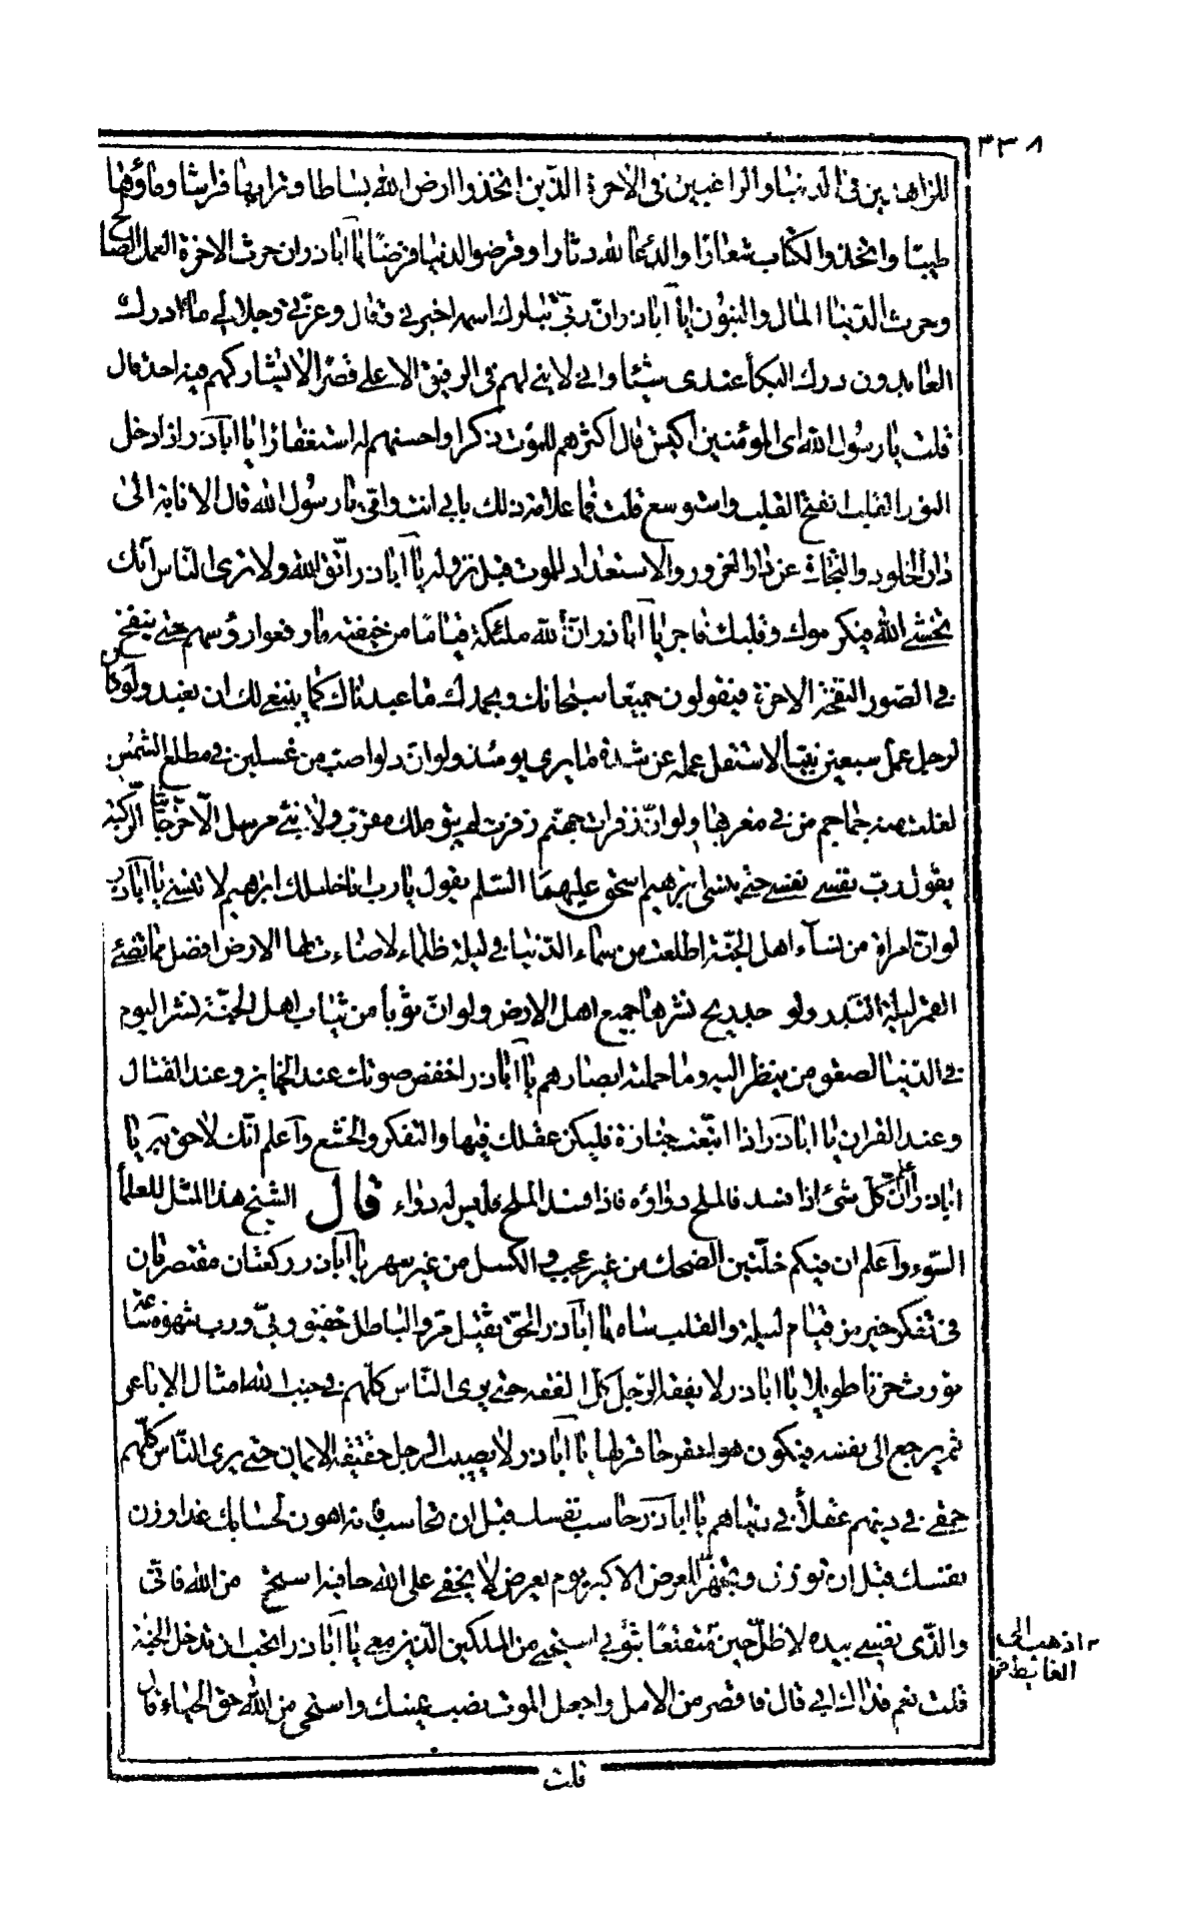 ٣٣٨
للزاهدين فى الدنيا والراغبين فى الاخرة الذين اتخذوا ارض الله بساطا وترابها فراشا وماؤها
طيبا واتخذوا الكتاب شعارا والدعا لله دثارا وقرضوا الدنيا قرضا يا اباذر ان حرث الاخرة العمل الصالح
وحرث الدنيا المال والبنون يا اباذر ان ربى تبارك اسمه اخبرنى فقال وعزتى وجلالى ما ادرك
العابدون درك البكاء عندى شيئا وانى لابنى لهم فى الرفيق الاعلى قصرا لا يشاركهم فيه احد قال
قلت يا رسول الله اى المؤمنين اكيس قال اكثرهم للموت ذكرا واحسنهم له استعدادا يا اباذر اذا دخل
النور القلب انفتح القلب واستوسع قلت فما علامة ذلك بابى انت وامى يا رسول الله قال الانابة الى
دار الخلود والتجافى عن دار الغرور والاستعداد للموت قبل نزوله يا اباذر اتق الله ولا ترى الناس انك
تخشى الله فيكرموك وقلبك فاجر يا اباذر ان لله ملئكة قياما من خيفته ما رفعوا رؤسهم حتى ينفخ
فى الصور النفخة الاخرة فيقولون جميعا سبحانك وبحمدك ما عبدناك كما ينبغى لك ان تعبد ولو كان
لرجل عمل سبعين نبيا لاستقل عمله عن شدة ما يرى يومئذ ولو ان دلوا صب من غسلين فى مطلع الشمس
لغلت منه جماجم من فى مغربها ولو ان زفرات جهنم زفرت لم يبق ملك مقرب ولا نبى مرسل الا خر جاثيا لركبته
يقول رب نفسى نفسى حتى ينسى ابرهيم اسحق عليهما السلم يقول يا رب انا خليلك ابرهيم لا تنسنى يا اباذر
لو ان امراة من نساء اهل الجنة اطلعت من سماء الدنيا فى ليلة ظلماء لاضاءت لها الارض افضل مما تضئ
القمر ليلة البدر ولوجد ريح نشرها جميع اهل الارض ولو ان ثوبا من ثياب اهل الجنة نشر اليوم
فى الدنيا لصعق من ينظر اليه وما حملته ابصارهم يا اباذر اخفض صوتك عند الجنايز وعند القتال
وعند القران يا اباذر اذا اتبعت جنازة فليكن عقلك فيها والتفكر والخشع واعلم انك لاحق به يا
اباذر اعلم ان كل شئ اذا فسد فالملح دواؤه فاذا فسد الملح فليس له دواء قال الشيخ هذا المثل للعلماء
السوء واعلم ان فيكم خلتين الضحك من غير عجب والكسل من غير سهر يا اباذر ركعتان مقتصرتان
فى تفكر خير من قيام ليلة والقلب ساه يا اباذر الحق ثقيل مر والباطل خفيف ورب شهوة ساعة
تورث حزنا طويلا يا اباذر لا يفقه الرجل كل الفقه حتى يرى الناس كلهم فى جنب الله امثال الاباعر
ثم يرجع الى نفسه فيكون هو احقر حاقر لها يا اباذر لا يصيب الرجل حقيقة الايمان حتى يرى الناس كلهم
حمقى فى دينهم عقلاء فى دنياهم يا اباذر حاسب نفسك قبل ان تحاسب فانه اهون لحسابك غدا وزن
نفسك قبل ان توزن وتجهز للعرض الاكبر يوم تعرض لا يخفى على الله خافية استحى من الله فانى
والذى نفسى بيده لا ظل حين متقنعا بثوبى استحى من الملكين الذين معى يا اباذر اتحب ان تدخل الجنة
٢ اذهب الى
الغائط
قلت نعم فداك ابى قال فاقصر من الامل واجعل الموت نصب عينك واستحى من الله حق الحياء قال
قلت